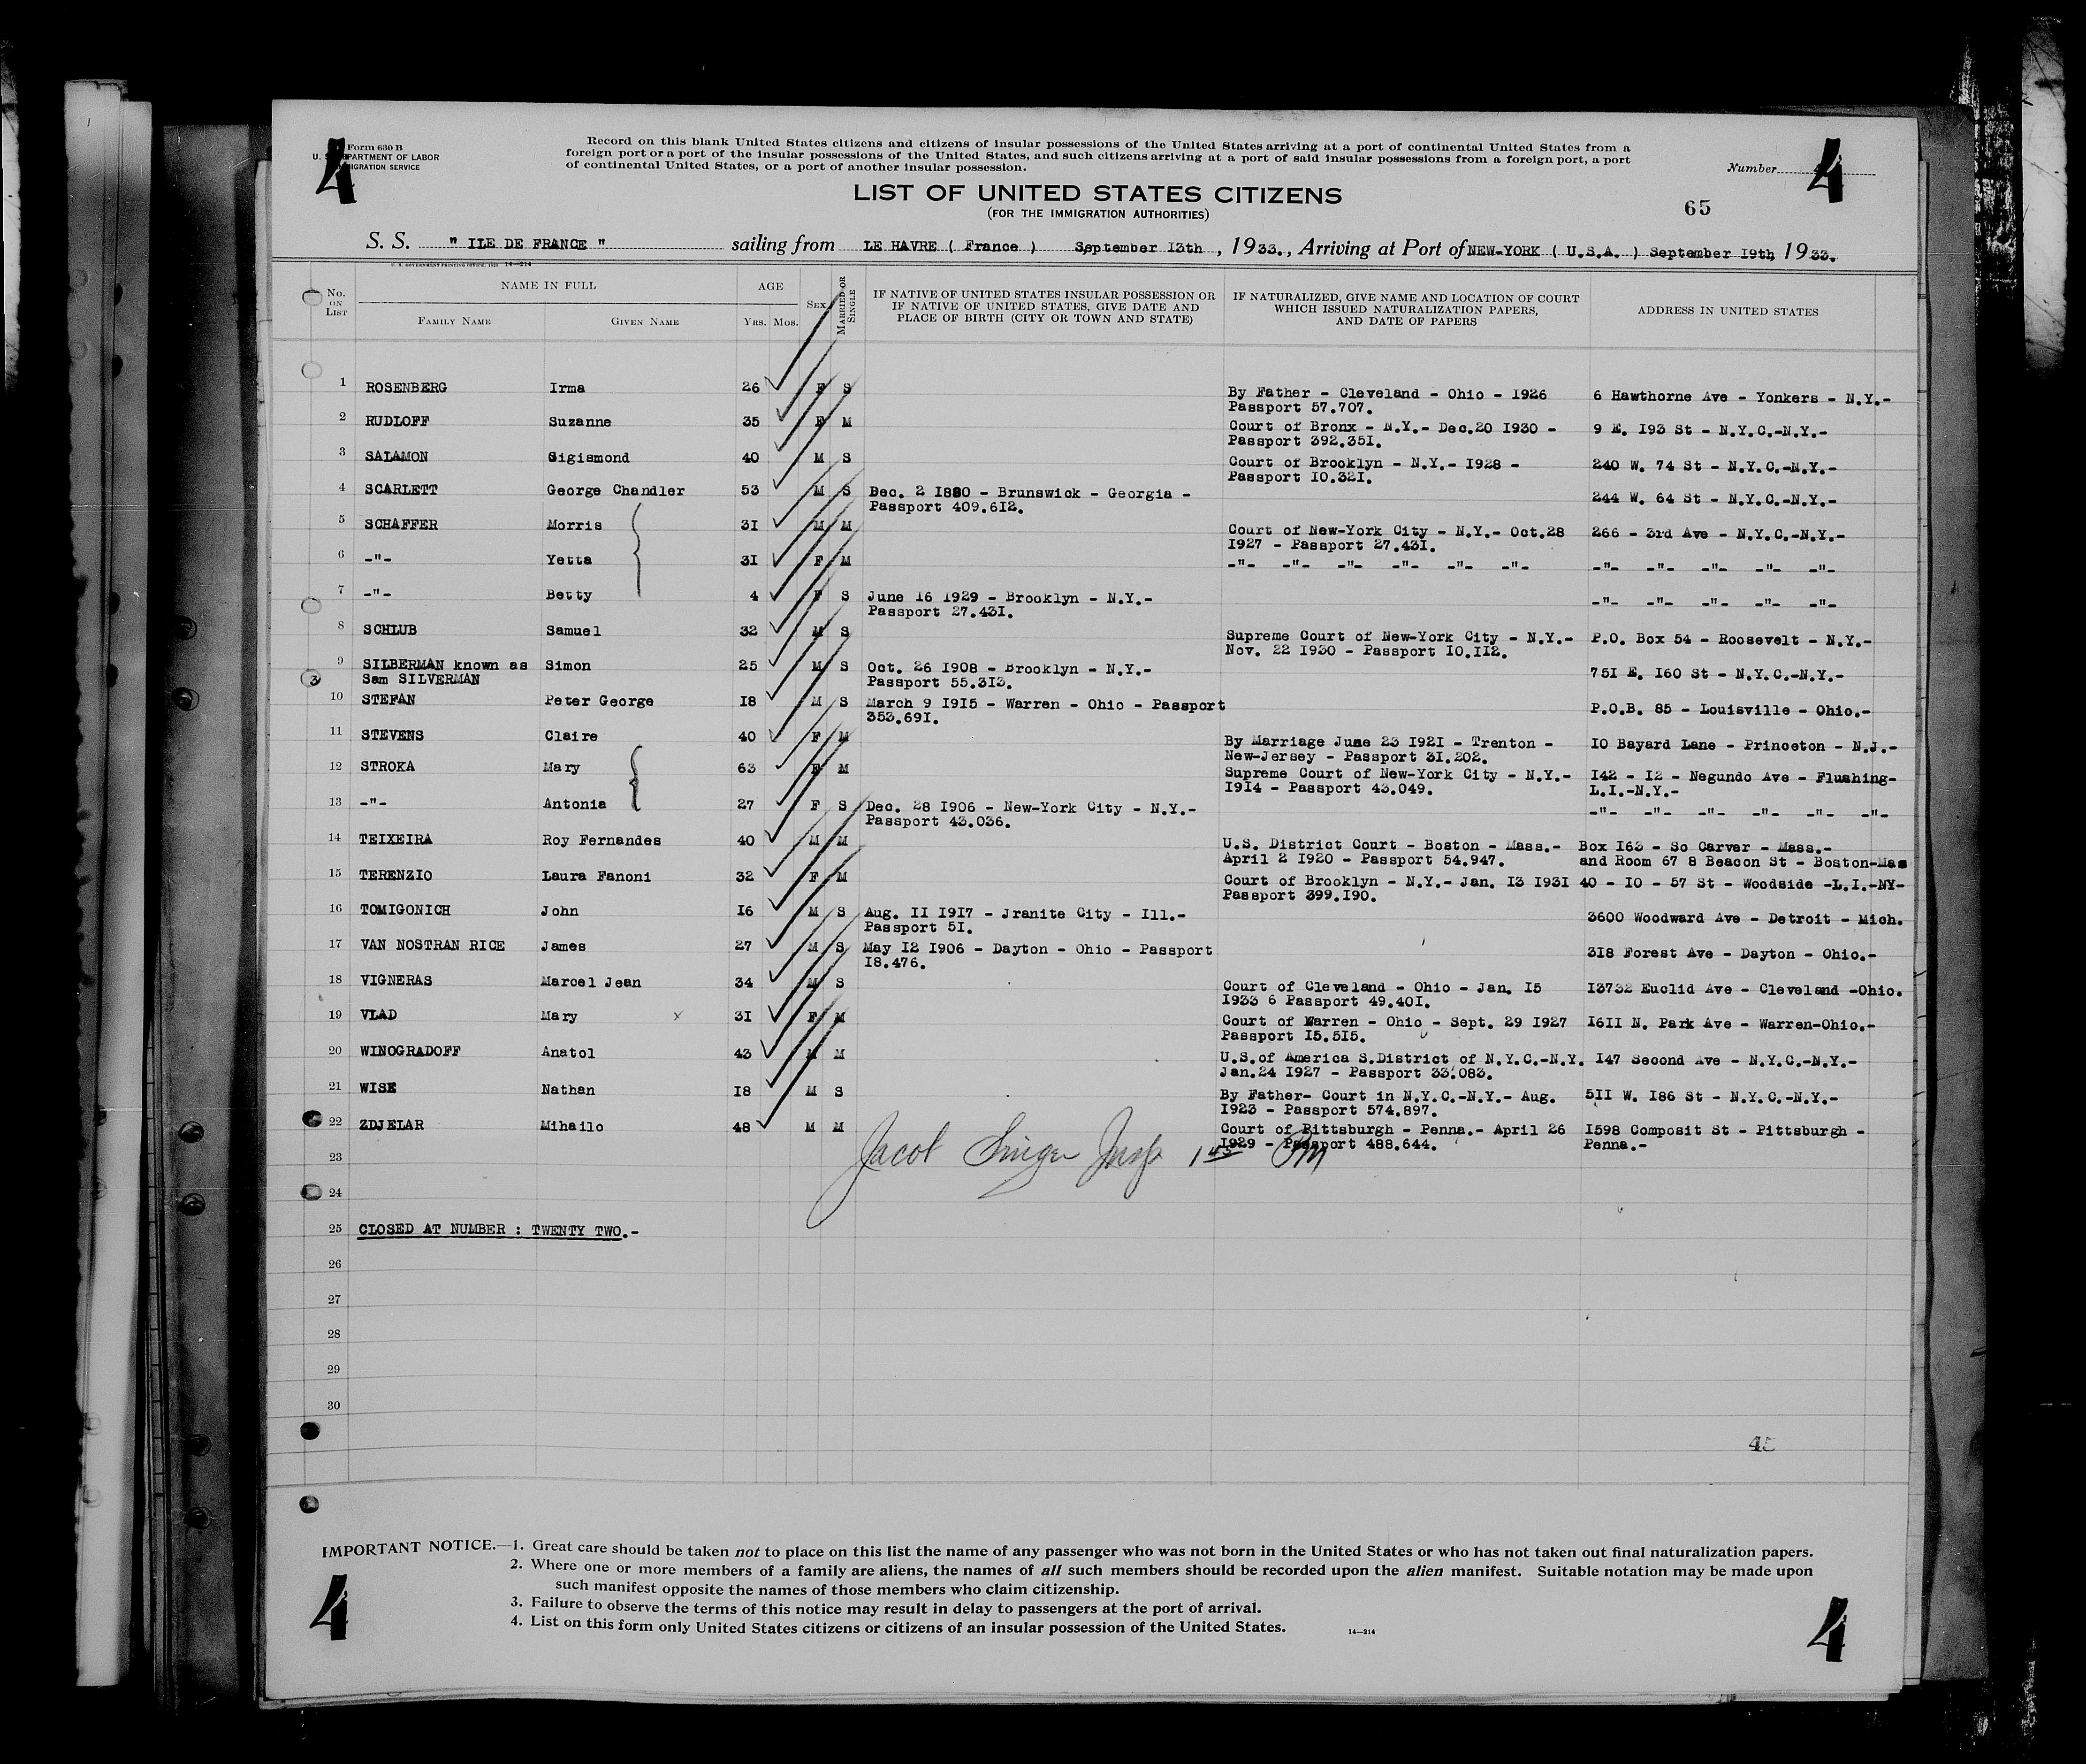 4
Form 630 B
U. S. DEPARTMENT OF LABOR
IMMIGRATION SERVICE
Record on this blank United States citizens and citizens of insular possessions of the United States arriving at a port of continental United States from a
foreign port or a port of the insular possessions of the United States, and such citizens arriving at a port of said insular possessions from a foreign port, a port
of continental United States, or a port of another insular possession.
Number 4
LIST OF UNITED STATES CITIZENS
(FOR THE IMMIGRATION AUTHORITIES)
65
S. S. " ILE DE FRANCE " sailing from LE HAVRE ( France ) September 13th , 1933., Arriving at Port of NEW-YORK ( U.S.A. ) September 19th, 1933.
U. S. GOVERNMENT PRINTING OFFICE, 14—214
No. ON LIST
NAME IN FULL
FAMILY NAME GIVEN NAME
AGE
YRS. MOS.
SEX
MARRIED OR SINGLE
IF NATIVE OF UNITED STATES INSULAR POSSESSION OR
IF NATIVE OF UNITED STATES, GIVE DATE AND
PLACE OF BIRTH (CITY OR TOWN AND STATE)
IF NATURALIZED, GIVE NAME AND LOCATION OF COURT
WHICH ISSUED NATURALIZATION PAPERS,
AND DATE OF PAPERS
ADDRESS IN UNITED STATES
1 ROSENBERG Irma 26 F S By Father - Cleveland - Ohio - I926 6 Hawthorne Ave - Yonkers - N.Y.-
Passport 57.707.
2 RUDLOFF Suzanne 35 F M Court of Bronx - N.Y.- Dec.20 I930 - 9 E. I93 St - N.Y.C.-N.Y.-
Passport 392.35I.
3 SALAMON Sigismond 40 M S Court of Brooklyn - N.Y.- I928 - 240 W. 74 St - N.Y.C.-N.Y.-
Passport I0.32I.
4 SCARLETT George Chandler 53 M S Dec. 2 I880 - Brunswick - Georgia - 244 W. 64 St - N.Y.C.-N.Y.-
Passport 409.6I2.
5 SCHAFFER Morris 3I M M Court of New-York City - N.Y.- Oct.28 266 - 3rd Ave - N.Y.C.-N.Y.-
I927 - Passport 27.43I.
6 -"- Yetta 3I F M -"- -"- -"- -"- -"- -"- -"- -"- -"- -"- -"-
7 -"- Betty 4 F S June I6 I929 - Brooklyn - N.Y.- -"- -"- -"- -"- -"-
Passport 27.43I.
8 SCHLUB Samuel 32 M S Supreme Court of New-York City - N.Y.- P.O. Box 54 - Roosevelt - N.Y.-
Nov. 22 I930 - Passport I0.II2.
9 SILBERMAN known as Simon 25 M S Oct. 26 I908 - Brooklyn - N.Y.- 75I E. I60 St - N.Y.C.-N.Y.-
3 Sam SILVERMAN Passport 55.313.
10 STEFAN Peter George I8 M S March 9 I9I5 - Warren - Ohio - Passport P.O.B. 85 - Louisville - Ohio.-
353.69I.
11 STEVENS Claire 40 F M By Marriage June 23 I92I - Trenton - I0 Bayard Lane - Princeton - N.J.-
New-Jersey - Passport 3I.202.
12 STROKA Mary 63 F M Supreme Court of New-York City - N.Y.- I42 - I2 - Negundo Ave - Flushing-
I9I4 - Passport 43.049. L.I.-N.Y.-
13 -"- Antonia 27 F S Dec. 28 I906 - New-York City - N.Y.- -"- -"- -"- -"- -"- -"-
Passport 43.036.
14 TEIXEIRA Roy Fernandes 40 M M U.S. District Court - Boston - Mass.- Box I63 - So Carver - Mass.-
April 2 I920 - Passport 54.947. and Room 67 8 Beacon St - Boston-Mas
15 TERENZIO Laura Fanoni 32 F M Court of Brooklyn - N.Y.- Jan. I3 I93I 40 - I0 - 57 St - Woodside -L.I.-NY-
Passport 399.I90.
16 TOMIGONICH John I6 M S Aug. II I9I7 - Jranite City - Ill.- 3600 Woodward Ave - Detroit - Mich.
Passport 5I.
17 VAN NOSTRAN RICE James 27 M S May I2 I906 - Dayton - Ohio - Passport 3I8 Forest Ave - Dayton - Ohio.-
I8.476.
18 VIGNERAS Marcel Jean 34 M S Court of Cleveland - Ohio - Jan. I5 I3732 Euclid Ave - Cleveland -Ohio.
I933 6 Passport 49.40I.
19 VLAD Mary x 3I F M Court of Warren - Ohio - Sept. 29 I927 I6II N. Park Ave - Warren-Ohio.-
Passport I5.5I5.
20 WINOGRADOFF Anatol 43 M M U.S.of America S.District of N.Y.C.-N.Y. I47 Second Ave - N.Y.C.-N.Y.-
Jan.24 I927 - Passport 33.083.
21 WISE Nathan I8 M S By Father- Court in N.Y.C.-N.Y.- Aug. 5II W. I86 St - N.Y.C.-N.Y.-
I923 - Passport 574.897.
22 ZDJELAR Mihailo 48 M M Court of Pittsburgh - Penna.- April 26 I598 Composit St - Pittsburgh -
I929 - Passport 488.644. Penna.-
23 Jacob Singer Insp 1 45 Pm
24
25 CLOSED AT NUMBER : TWENTY TWO.-
26
27
28
29
30
45
IMPORTANT NOTICE.—1. Great care should be taken not to place on this list the name of any passenger who was not born in the United States or who has not taken out final naturalization papers.
2. Where one or more members of a family are aliens, the names of all such members should be recorded upon the alien manifest. Suitable notation may be made upon
such manifest opposite the names of those members who claim citizenship.
3. Failure to observe the terms of this notice may result in delay to passengers at the port of arrival.
4. List on this form only United States citizens or citizens of an insular possession of the United States.
14—214
4
4